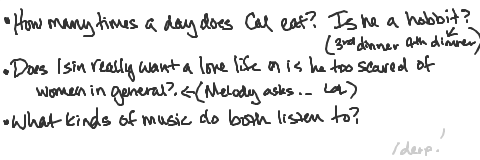 • How many times a day does Cal eat? Is he a hobbit?
(3rd dinner 4th dinner)
• Does Isin really want a love life or is he too scared of
women in general? ← (Melody asks.. LOL)
• What kinds of music do both listen to?
/derp!